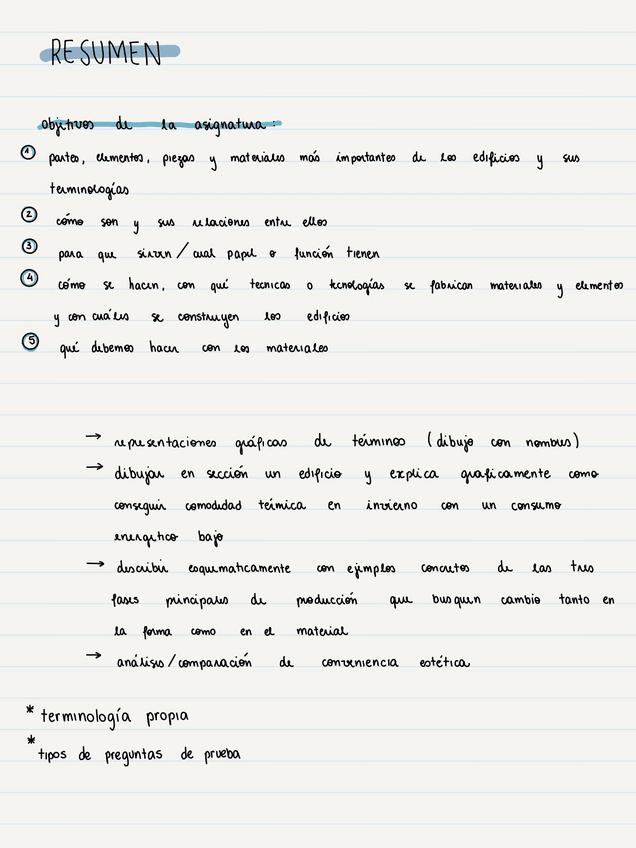 RESUMEN
objetivos de la asignatura:
1 partes, elementos, piezas y materiales más importantes de los edificios y sus
terminologías
2 cómo son y sus relaciones entre ellos
3 para que sirven / cual papel o función tienen
4 cómo se hacen, con qué tecnicas o tecnologías se fabrican materiales y elementos
y con cuáles se construyen los edificios
5 qué debemos hacer con los materiales
→ representaciones gráficas de términos (dibujo con nombres)
→ dibujar en sección un edificio y explica graficamente como
conseguir comodidad térmica en invierno con un consumo
energetico bajo
→ describir esquematicamente con ejemplos concretos de las tres
fases principales de producción que busquen cambio tanto en
la forma como en el material
→ análisis/comparación de conveniencia estética
* terminología propia
* tipos de preguntas de prueba